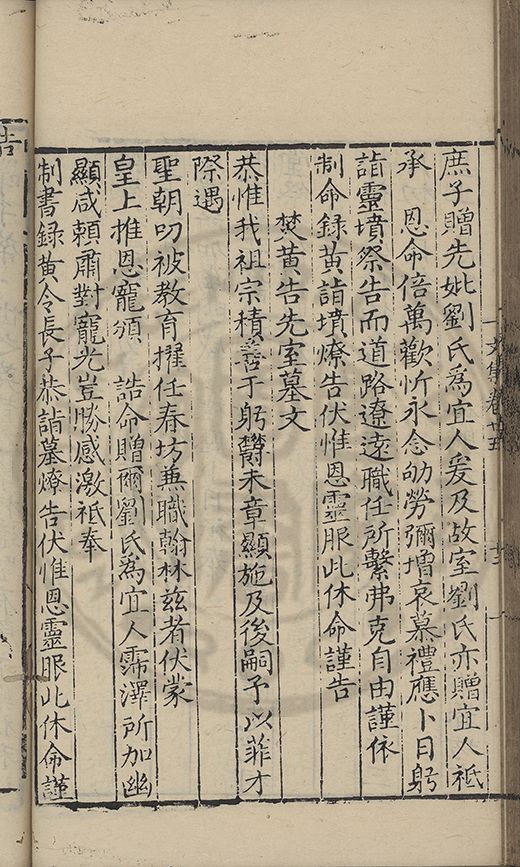 庶子贈先妣劉氏為宜人爰及故室劉氏亦贈宜人祗
承　恩命倍萬歡忻永念劬勞彌增哀慕禮應卜日躬
詣靈墳祭告而道路遼遠職任所繫弗克自由謹依
制命錄黃詣墳燎告伏惟恩靈服此休命謹告
焚黃告先室墓文
恭惟我祖宗積善于躬鬱未章顯施及後嗣予以菲才
際遇
聖朝叨被教育擢任春坊兼職翰林茲者伏蒙
皇上推恩寵頒　誥命贈爾劉氏為宜人霈澤所加幽
顯咸賴肅對寵光豈勝感激祗奉
制書錄黃令長子恭詣墓燎告伏惟恩靈服此休命謹
文集卷廿五
告